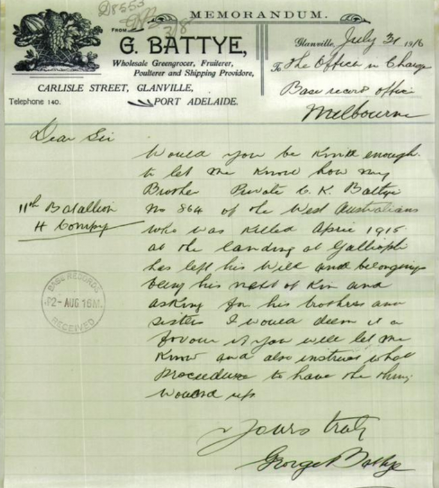 D8553
MEMORANDUM.
FROM
G. BATTYE,
Wholesale Greengrocer, Fruiterer,
Poulterer and Shipping Providore,
CARLISLE STREET, GLANVILLE,
Telephone 140.
PORT ADELAIDE.
Glanville, July 31 1916
To The Office in Charge
Base record office
Melbourne
Dear Sir
Would you be kind enough
to let me know how my
Brother Private C. K. Battye
No 864 of the West Australians
11th Batallion
H Compy
who was killed April 1915
at the landing at Gallipoli
has left his Will and belongings
being his next of Kin and
asking for his brothers and
sisters I would deem it a
favour if you will let me
Know and also instruct what
proceedure to have the thing
wound up
Yours truly
George Battye
BASE RECORDS
2-AUG 16
RECEIVED